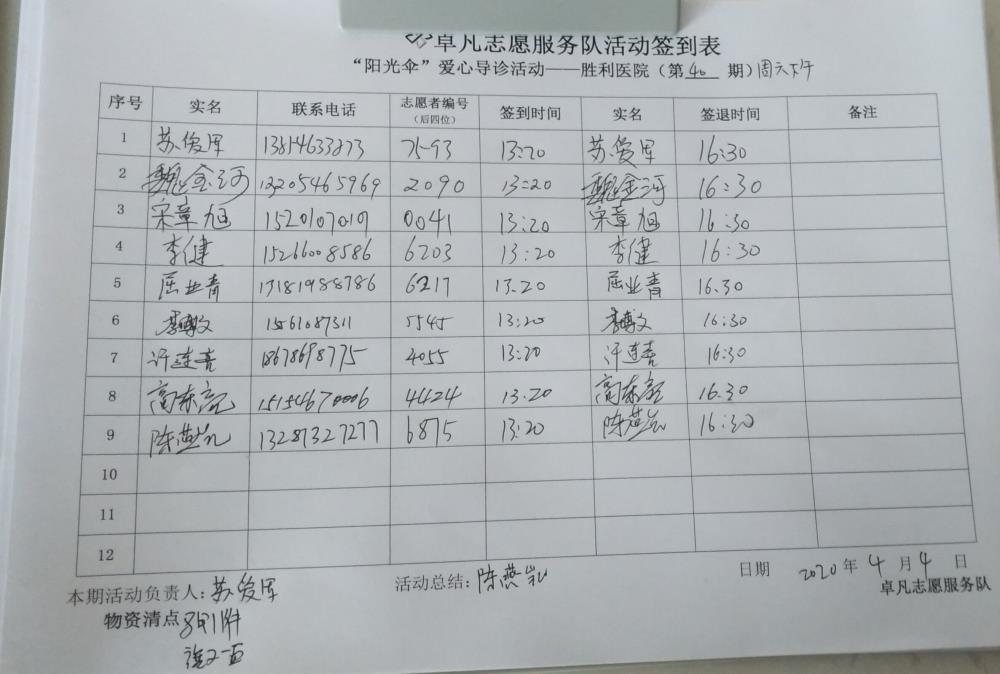 卓凡志愿服务队活动签到表
“阳光伞”爱心导诊活动——胜利医院（第 40 期）周六下午
序号 实名 联系电话 志愿者编号（后四位） 签到时间 实名 签退时间 备注
1 苏俊军 13814633873 7593 13:20 苏俊军 16:30
2 魏金河 13205465969 2090 13:20 魏金河 16:30
3 宋章旭 15201070109 0041 13:20 宋章旭 16:30
4 李健 15266008586 6203 13:20 李健 16:30
5 屈业青 17181988786 6217 13.20 屈业青 16.30
6 李博文 15561087311 5545 13:20 李博文 16:30
7 许连喜 18678698775 4055 13:20 许连喜 16:30
8 高东 15154670006 4424 13.20 高东 16.30
9 陈燕 13287327277 6875 13:20 陈燕 16:30
10
11
12
本期活动负责人：苏俊军 活动总结：陈燕 日期 2020 年 4 月 4 日
卓凡志愿服务队
物资清点 马甲11件